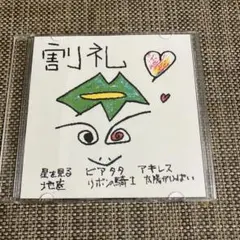 割礼
星を見る　ピアタタ　アキレス
地底　リボンの騎士　太陽がいっぱい